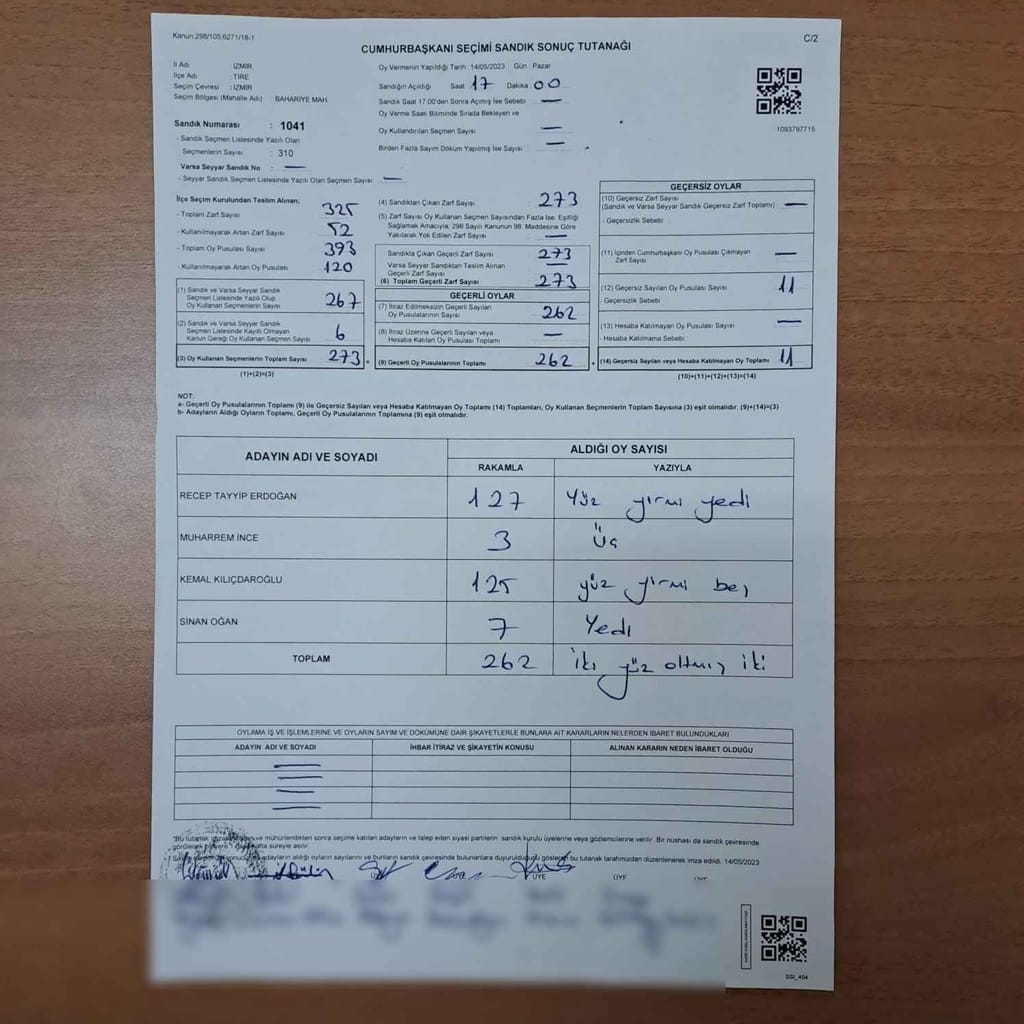 Kanun:298/105;6271/18-1
C/2
CUMHURBAŞKANI SEÇİMİ SANDIK SONUÇ TUTANAĞI
İl Adı : İZMİR
İlçe Adı : TİRE
Seçim Çevresi : İZMİR
Seçim Bölgesi (Mahalle Adı) BAHARİYE MAH
Sandık Numarası : 1041
- Sandık Seçmen Listesinde Yazılı Olan
Seçmenlerin Sayısı : 310
Varsa Seyyar Sandık No : —
- Seyyar Sandık Seçmen Listesinde Yazılı Olan Seçmen Sayısı : —
Oy Vermenin Yapıldığı Tarih : 14/05/2023 Gün : Pazar
Sandığın Açıldığı Saat 17 Dakika 00
Sandık Saat 17.00'den Sonra Açılmış İse Sebebi —
Oy Verme Saati Bitiminde Sırada Bekleyen ve
Oy Kullandırılan Seçmen Sayısı —
Birden Fazla Sayım Döküm Yapılmış İse Sayısı —
1093797715
İlçe Seçim Kurulundan Teslim Alınan;
- Toplam Zarf Sayısı 325
- Kullanılmayarak Artan Zarf Sayısı 52
- Toplam Oy Pusulası Sayısı 393
- Kullanılmayarak Artan Oy Pusulası 120
(1) Sandık ve Varsa Seyyar Sandık
Seçmen Listesinde Yazılı Olup
Oy Kullanan Seçmenlerin Sayısı 267
(2) Sandık ve Varsa Seyyar Sandık
Seçmen Listesinde Kayıtlı Olmayan
Kanun Gereği Oy Kullanan Seçmen Sayısı 6
(3) Oy Kullanan Seçmenlerin Toplam Sayısı 273 =
(1)+(2)=(3)
(4) Sandıktan Çıkan Zarf Sayısı 273
(5) Zarf Sayısı Oy Kullanan Seçmen Sayısından Fazla İse, Eşitliği
Sağlamak Amacıyla, 298 Sayılı Kanunun 98. Maddesine Göre
Yakılarak Yok Edilen Zarf Sayısı —
Sandıkta Çıkan Geçerli Zarf Sayısı 273
Varsa Seyyar Sandıktan Teslim Alınan
Geçerli Zarf Sayısı —
(6) Toplam Geçerli Zarf Sayısı 273
GEÇERLİ OYLAR
(7) İtiraz Edilmeksizin Geçerli Sayılan
Oy Pusulalarının Sayısı 262
(8) İtiraz Üzerine Geçerli Sayılan veya
Hesaba Katılan Oy Pusulası Toplamı —
(9) Geçerli Oy Pusulalarının Toplamı 262 +
GEÇERSİZ OYLAR
(10) Geçersiz Zarf Sayısı
(Sandık ve Varsa Seyyar Sandık Geçersiz Zarf Toplamı) —
- Geçersizlik Sebebi
(11) İçinden Cumhurbaşkanı Oy Pusulası Çıkmayan
Zarf Sayısı —
(12) Geçersiz Sayılan Oy Pusulası Sayısı 11
- Geçersizlik Sebebi
(13) Hesaba Katılmayan Oy Pusulası Sayısı —
- Hesaba Katılmama Sebebi
(14) Geçersiz Sayılan veya Hesaba Katılmayan Oy Toplamı 11
(10)+(11)+(12)+(13)=(14)
NOT:
a- Geçerli Oy Pusulalarının Toplamı (9) ile Geçersiz Sayılan veya Hesaba Katılmayan Oy Toplamı (14) Toplamları, Oy Kullanan Seçmenlerin Toplam Sayısına (3) eşit olmalıdır. (9)+(14)=(3)
b- Adayların Aldığı Oyların Toplamı, Geçerli Oy Pusulalarının Toplamına (9) eşit olmalıdır.
ADAYIN ADI VE SOYADI ALDIĞI OY SAYISI
RAKAMLA YAZIYLA
RECEP TAYYİP ERDOĞAN 127 Yüz yirmi yedi
MUHARREM İNCE 3 Üç
KEMAL KILIÇDAROĞLU 125 yüz yirmi beş
SİNAN OĞAN 7 Yedi
TOPLAM 262 iki yüz altmış iki
OYLAMA İŞ VE İŞLEMLERİNE VE OYLARIN SAYIM VE DÖKÜMÜNE DAİR ŞİKAYETLERLE BUNLARA AİT KARARLARIN NELERDEN İBARET BULUNDUKLARI
ADAYIN ADI VE SOYADI İHBAR İTİRAZ VE ŞİKAYETİN KONUSU ALINAN KARARIN NEDEN İBARET OLDUĞU
"Bu tutanak ve mühürlendikten sonra seçime katılan adayların ve talep eden siyasi partilerin sandık kurulu üyelerine veya gözlemcilerine verilir. Bir nüshası da sandık çevresinde
görülecek bir yere hafta süreyle asılır
adayların aldığı oyların sayılarını ve bunların sandık çevresinde bulunanlara duyurulduğunu gösteren bu tutanak tarafımızdan düzenlenerek imza edildi. 14/05/2023
ÜYE ÜYE ÜYE
SGI_404